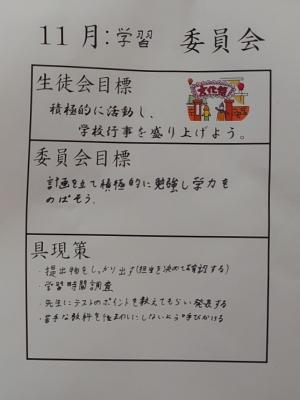 11月:学習 委員会
生徒会目標
文化祭
積極的に活動し、
学校行事を盛り上げよう。
委員会目標
計画を立て積極的に勉強し学力を
のばそう。
具現策
・提出物をしっかり出す(担当を決めて確認する)
・学習時間調査
・先生にテストのポイントを教えてもらい発表する
・苦手な教科を後まわしにしないよう呼びかける